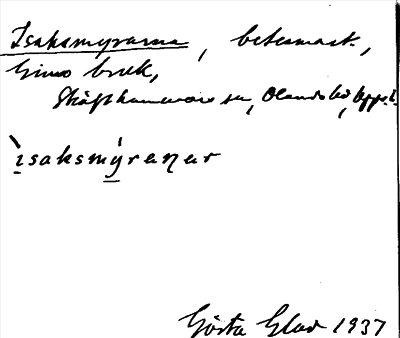 Isaksmyrarna, betesmark,
Gimo bruk,
Skäfthammars sn, Olands hd, Uppl.
ìsaksmýraɳar
Gösta Glad 1937